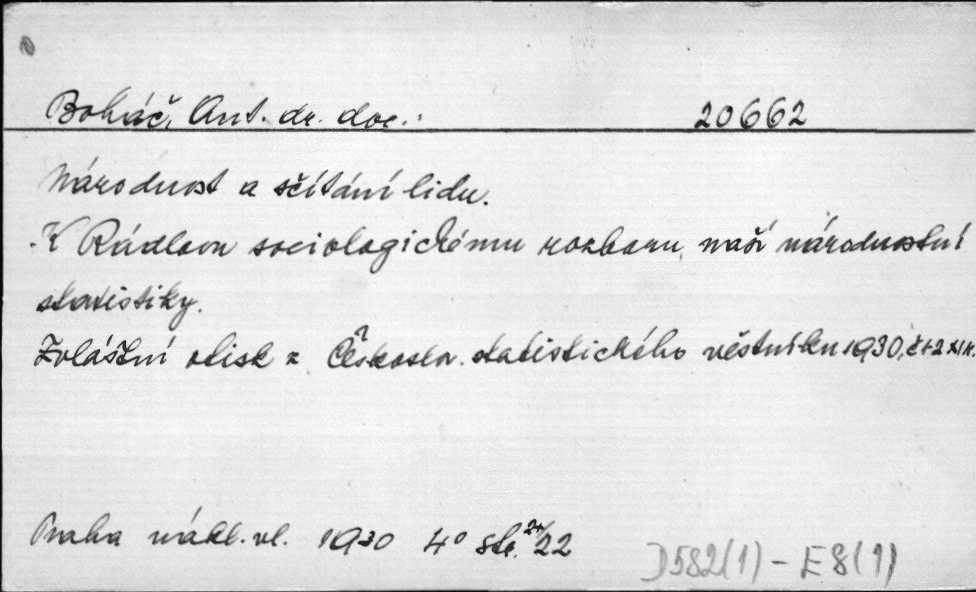 Boháč, Ant. dr. doc.: 20662
Národnost a sčítání lidu.
K Rádlovu sociologickému rozboru naší národnostní
statistiky.
Zvláštní otisk z Českoslov. statistického věstníku 1930, č 1+2 XI r.
Praha nákl. vl. 1930 4° str. 2+/22
D582(1) - E8(1)